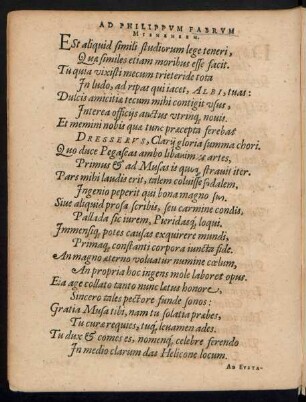 AD PHILIPPVM FABRVM
MISNENSEM.
ESt aliquid simili studiorum lege teneri,
Qua similes etiam moribus esse facit.
Tu quia vixisti mecum trieteride tota
In ludo, ad ripas qui iacet, ALBI, tuas:
Dulcis amicitiæ tecum mihi contigit vsus,
Interea officijs auctus vtrinq, nouis.
Et memini nobis quæ tunc præcepta ferebas
DRESSERVS, Clarij gloria summa chori.
Quo duce Pegaseas ambo libauimus artes,
Primus & ad Musas is quoq, strauit iter.
Pars mihi laudis erit, talem coluisse sodalem,
Ingenio peperit qui bona magno suo.
Siue aliquid prosa scribis, seu carmine condis,
Pallada sic iurem, Pieridasq, loqui.
Immensiq, potes causas exquirere mundi,
Primaq, constanti corpora iuncta fide.
An magno æterno voluatur numine cœlum,
An propria hoc ingens mole laboret opus.
Eia age collato tanto nunc latus honore,
Sincero tales pectore funde sonos:
Gratia Musa tibi, nam tu solatia præbes,
Tu curæ requies, tuq, leuamen ades.
Tu dux & comes es, nomenq, celebre ferendo
In medio clarum das Helicone locum.
AD EVSTA-